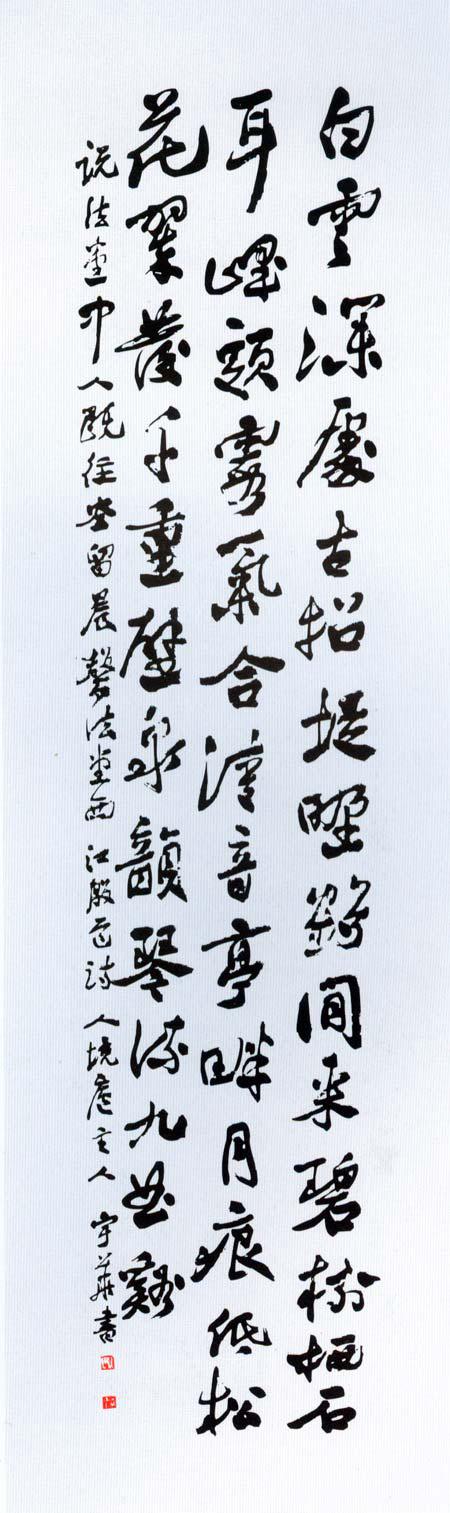 白雲深處古招堤野鶴閒来碧樹栖石
耳峰頭霧氣合清音亭畔月痕低松
花翠發千重壁泉韻琴流九曲谿
説法堂中人既往空留晨磬法堂西 江殷 詩 人境廬主人 宇華書